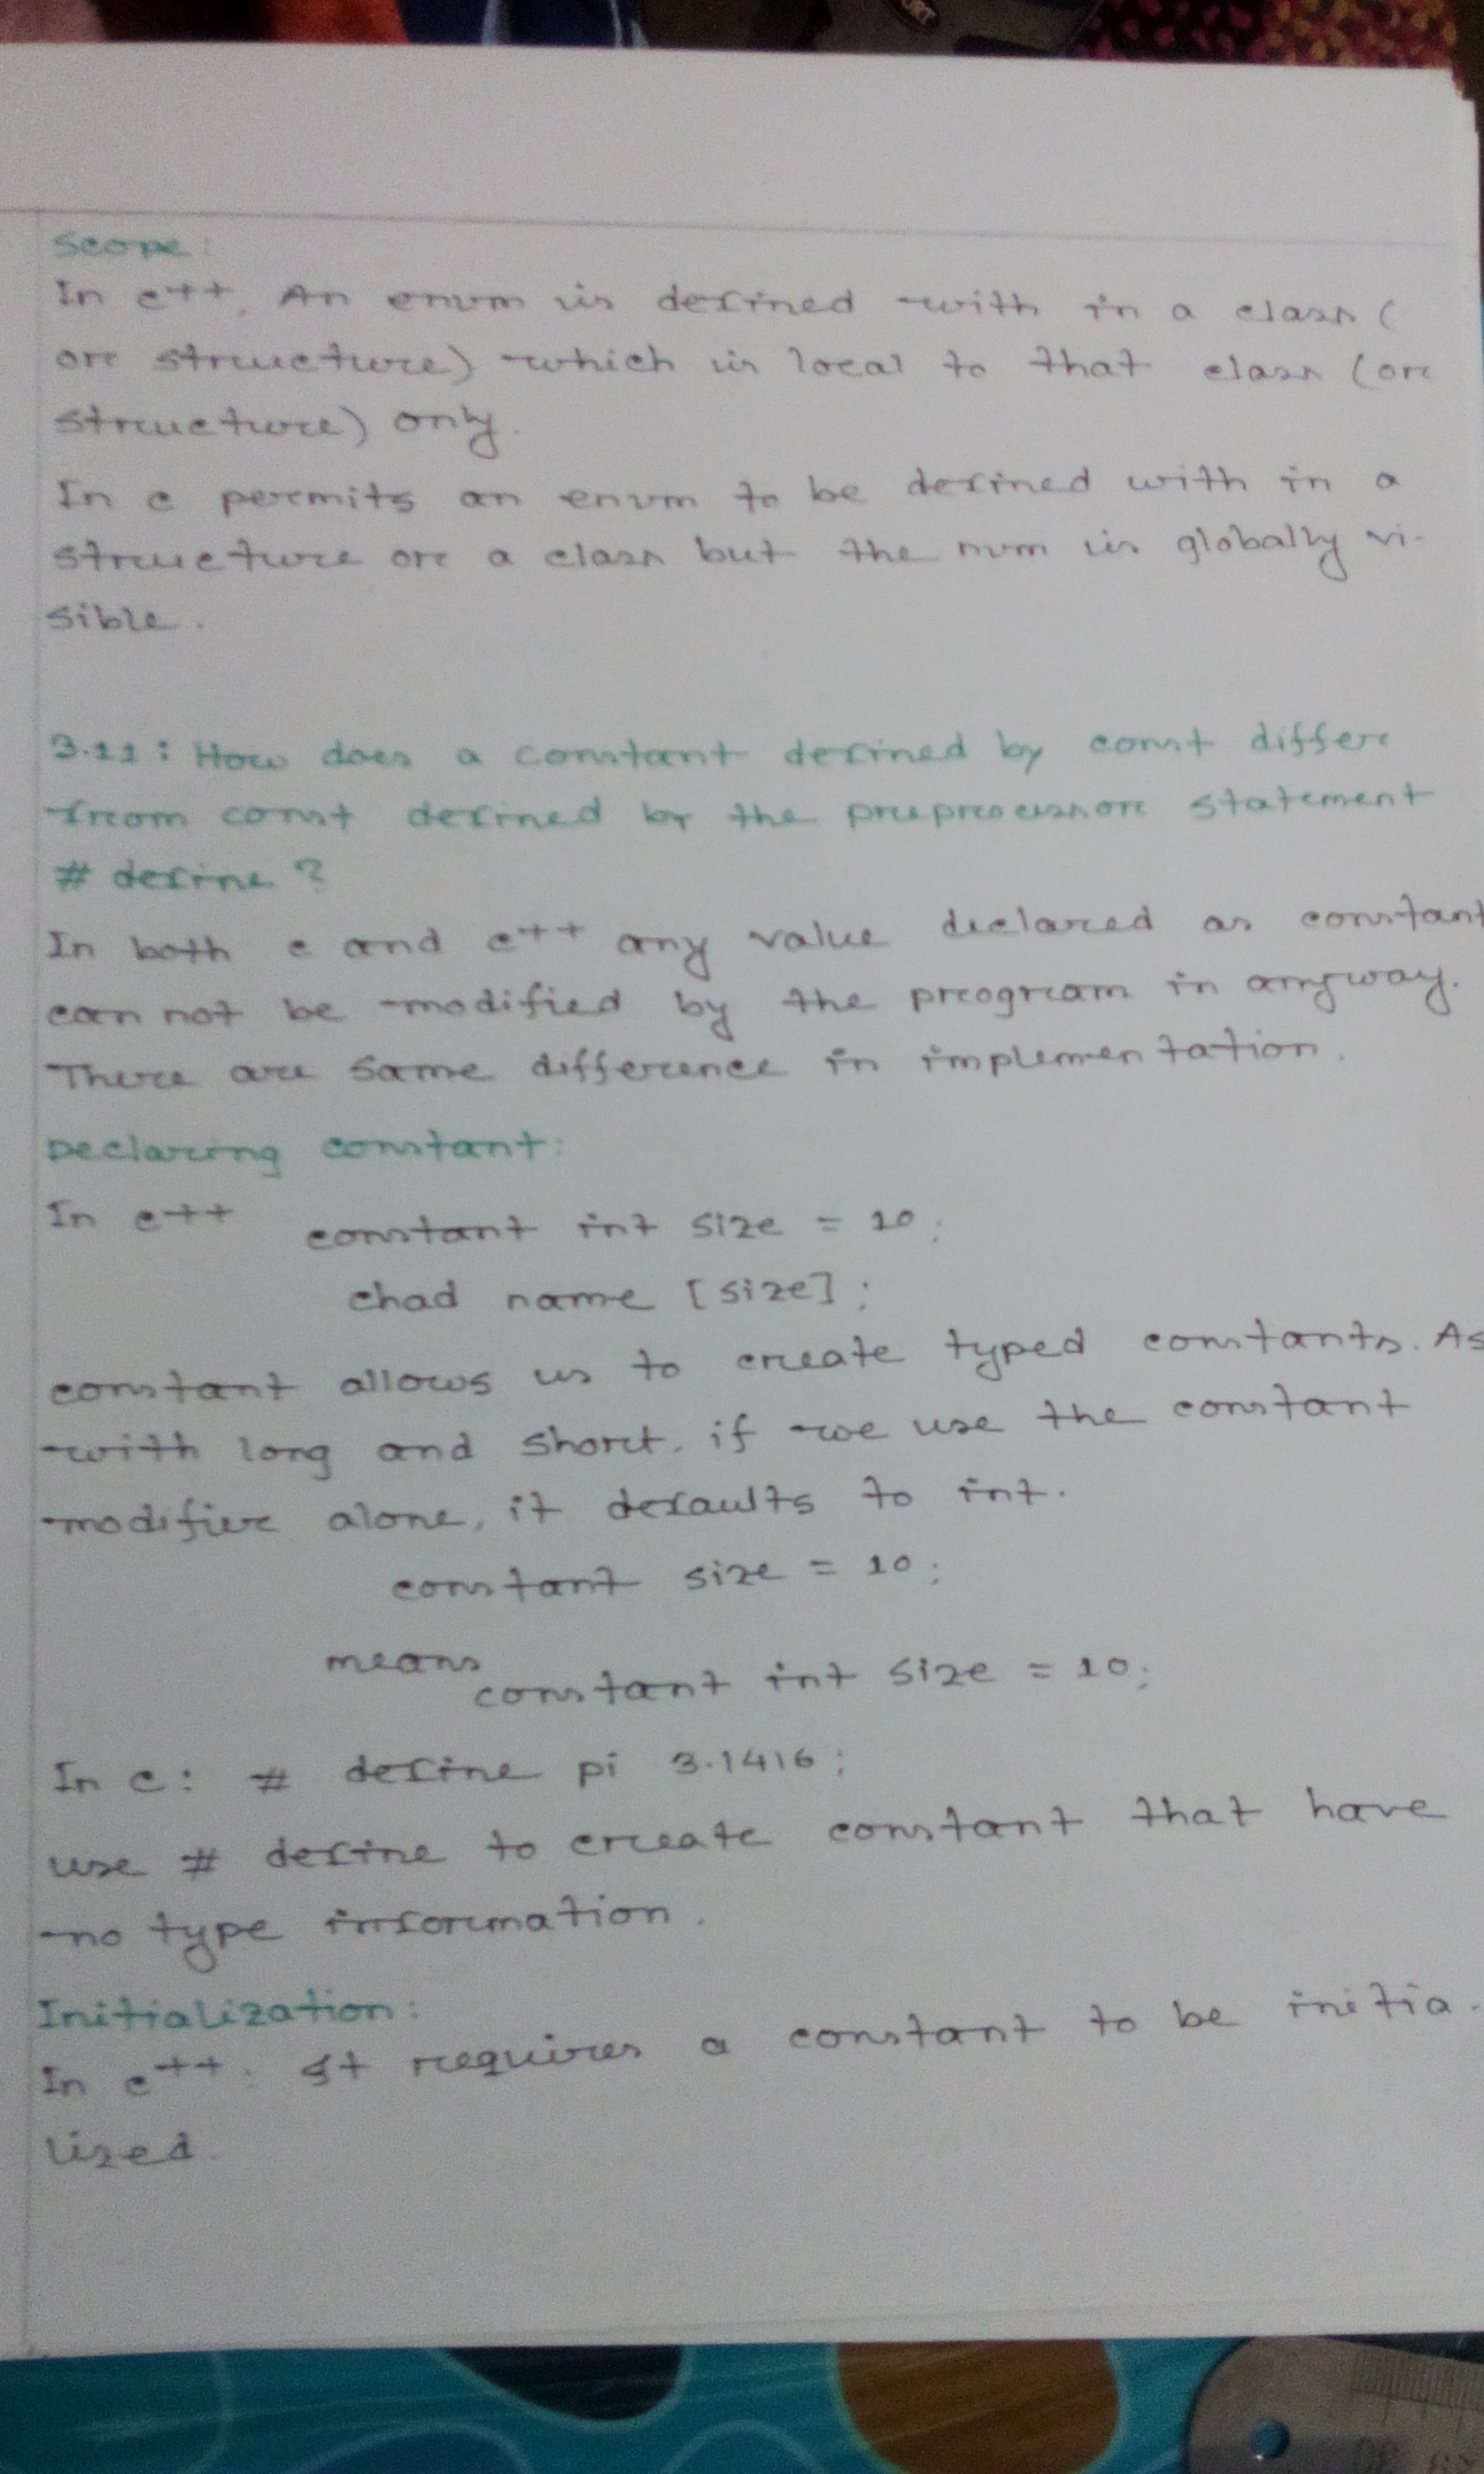 Scope:
In c++, An enum is defined with in a class (
or structure) which is local to that class (or
structure) only.
In c permits an enum to be defined with in a
structure or a class but the num is globally vi-
sible.
3.11: How does a constant defined by const differ
from const defined by the preprocessor statement
# define ?
In both c and c++ any value declared as constant
can not be modified by the program in anyway.
There are same difference in implementation.
Declaring constant:
In c++ constant int size = 10;
chad name [size];
constant allows us to create typed constants. As
with long and short, if we use the constant
modifier alone, it defaults to int.
constant size = 10;
means
constant int size = 10;
In c: # define pi 3.1416;
use # define to create constant that have
no type information.
Initialization:
In c++: It requires a constant to be initia-
lized.